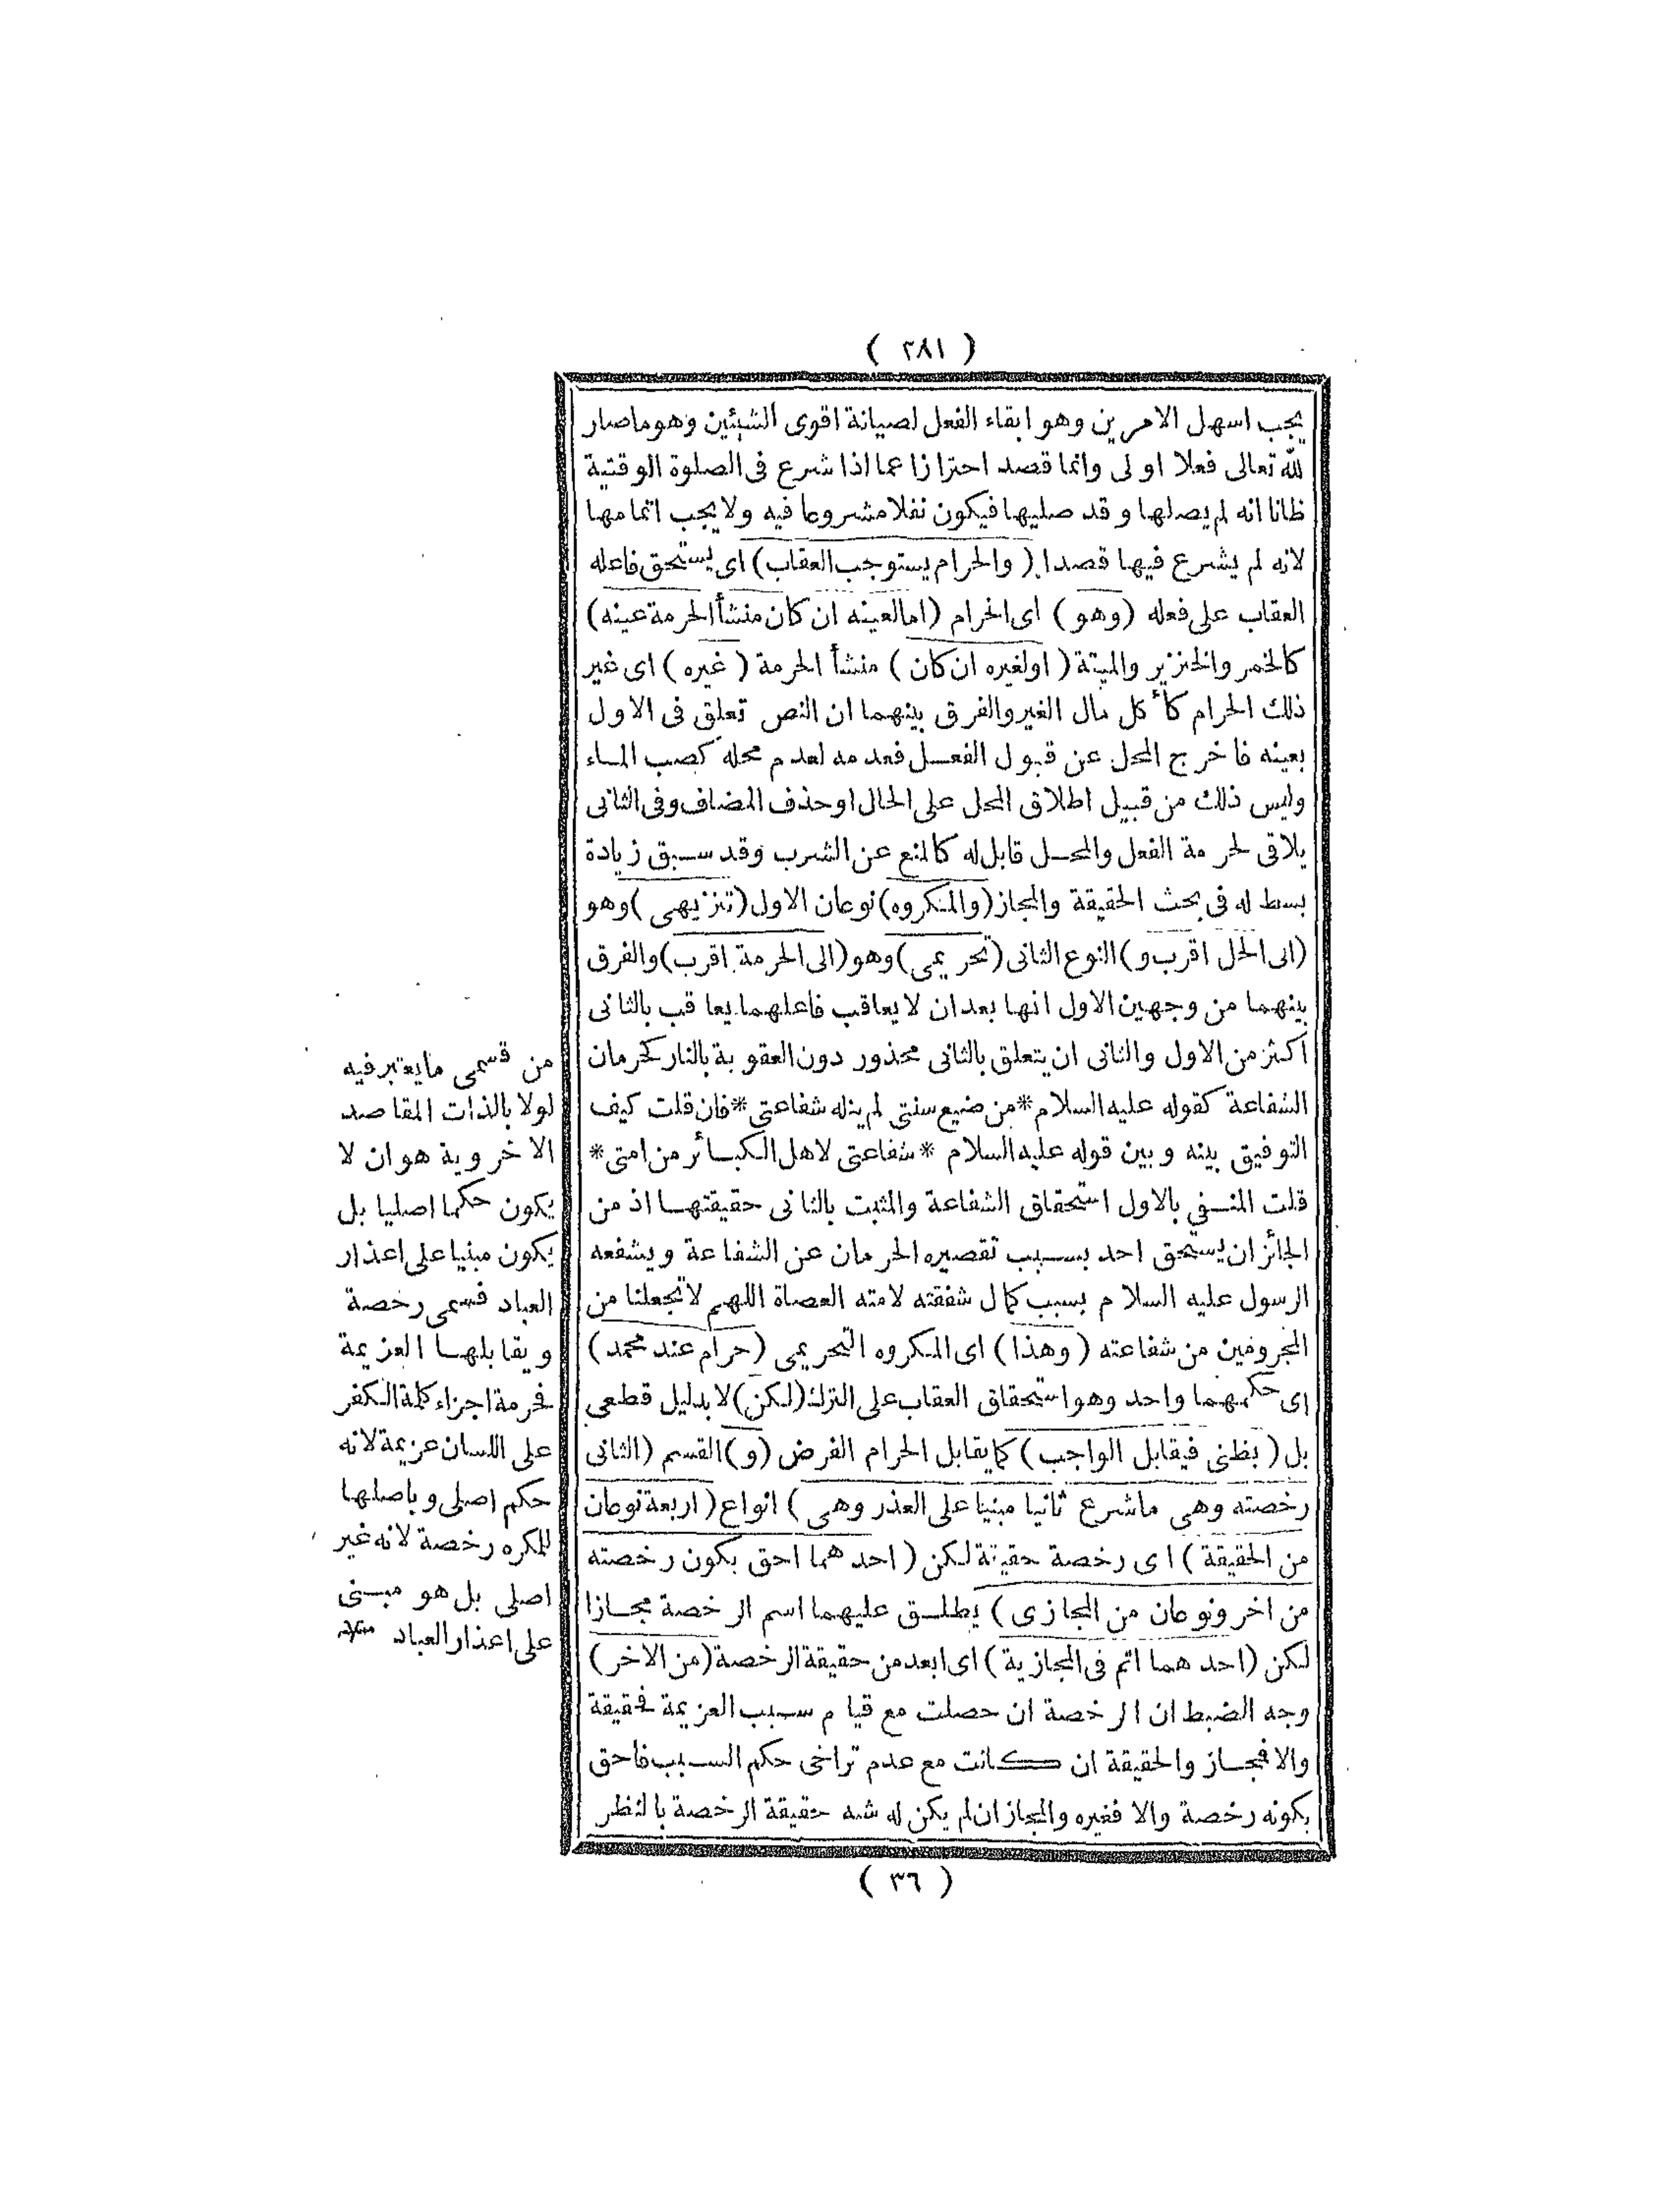 ( ٢٨١ )
يجب اسهل الامرين وهو ابقاء الفعل لصيانة اقوى الشيئين وهو ماصار
لله تعالى فعلا اولى وانما قصد احترازا عما اذا شرع فى الصلوة الوقتية
ظانا انه لم يصلها وقد صليها فيكون نفلا مشروعا فيه ولا يجب اتمامها
لانه لم يشرع فيها قصدا ( والحرام يستوجب العقاب ) اى يستحق فاعله
العقاب على فعله ( وهو ) اى الحرام ( اما لعينه ان كان منشأ الحرمة عينه )
كالخمر والخنزير والميتة ( او لغيره ان كان ) منشأ الحرمة ( غيره ) اى غير
ذلك الحرام كأكل مال الغير والفرق بينهما ان النص تعلق فى الاول
بعينه فاخرج المحل عن قبول الفعل فعدمه لعدم محله كصب الماء
وليس ذلك من قبيل اطلاق المحل على الحال او حذف المضاف وفى الثانى
يلاقى لحرمة الفعل والمحل قابل له كالمنع عن الشرب وقد سبق زيادة
بسط له فى بحث الحقيقة والمجاز ( والمكروه ) نوعان الاول ( تنزيهى ) وهو
( الى الحل اقرب و ) النوع الثانى ( تحريمى ) وهو ( الى الحرمة اقرب ) والفرق
بينهما من وجهين الاول انها بعد ان لا يعاقب فاعلهما يعاقب بالثانى
اكثر من الاول والثانى ان يتعلق بالثانى محذور دون العقوبة بالنار كحرمان
الشفاعة كقوله عليه السلام * من ضيع سنتى لم ينله شفاعتى * فان قلت كيف
التوفيق بينه وبين قوله عليه السلام * شفاعتى لاهل الكبائر من امتى *
قلت المنفى بالاول استحقاق الشفاعة والمثبت بالثانى حقيقتها اذ من
الجائز ان يستحق احد بسبب تقصيره الحرمان عن الشفاعة ويشفعه
الرسول عليه السلام بسبب كمال شفقته لامته العصاة اللهم لا تجعلنا من
المحرومين من شفاعته ( وهذا ) اى المكروه التحريمى ( حرام عند محمد )
اى حكمهما واحد وهو استحقاق العقاب على الترك ( لكن ) لا بدليل قطعى
بل ( بظنى فيقابل الواجب ) كما يقابل الحرام الفرض ( و ) القسم ( الثانى
رخصته وهى ماشرع ثانيا مبنيا على العذر وهى ) انواع ( اربعة نوعان
من الحقيقة ) اى رخصة حقيقة لكن ( احدهما احق بكون رخصته
من اخر ونوعان من المجازى ) يطلق عليهما اسم الرخصة مجازا
لكن ( احدهما اتم فى المجازية ) اى ابعد من حقيقة الرخصة ( من الاخر )
وجه الضبط ان الرخصة ان حصلت مع قيام سبب العزيمة فحقيقة
والا فمجاز والحقيقة ان كانت مع عدم تراخى حكم السبب فاحق
بكونه رخصة والا فغيره والمجاز ان لم يكن له شبه حقيقة الرخصة بالنظر
( ٣٦ )
من قسمى مايعتبر فيه
لولا بالذات المقاصد
الاخروية هو ان لا
يكون حكما اصليا بل
يكون مبنيا على اعذار
العباد فسمى رخصة
ويقابلها العزيمة
فحرمة اجزاء كلمة الكفر
على اللسان عزيمة لانه
حكم اصلى وباصلها
للمكره رخصة لانه غير
اصلى بل هو مبنى
على اعذار العباد